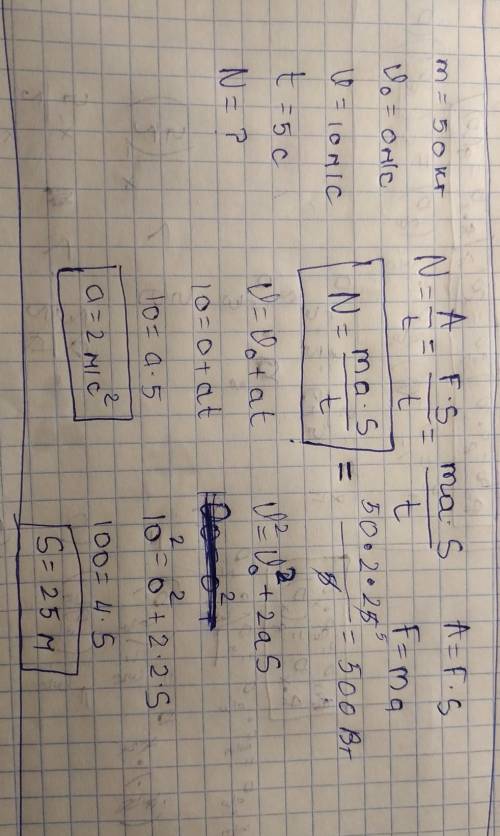 m = 50 кг
v₀ = 0 м/с
v = 10 м/с
t = 5 с
N = ?
N = A/t = F·S/t = ma·S/t
A = F·S
F = ma
N = ma·S/t = 50·2·25/5 = 500 Вт
v = v₀ + at
10 = 0 + at
10 = a·5
a = 2 м/с²
v² = v₀² + 2aS
10² = 0² + 2·2·S
100 = 4·S
S = 25 м